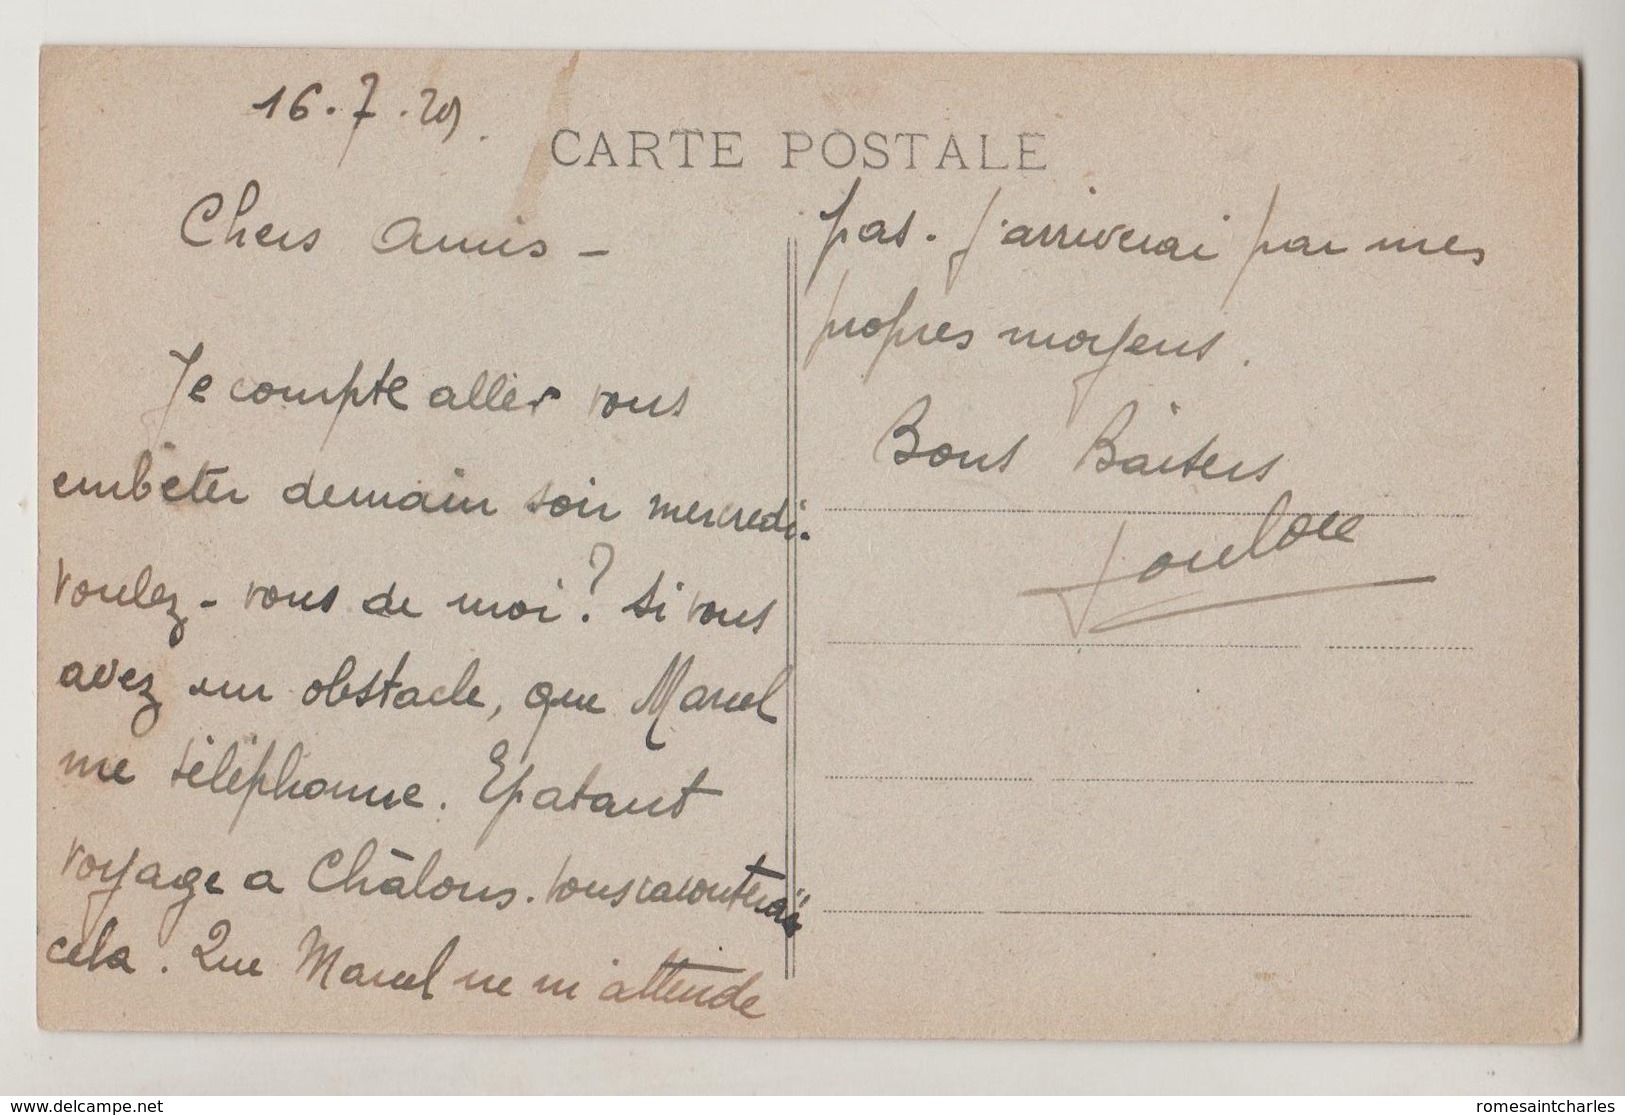 16.7.29.
CARTE POSTALE
Chers Amis -
Je compte aller vous
embêter demain soir mercredi.
Voulez-vous de moi? Si vous
avez un obstacle, que Marcel
me téléphone. Epatant
voyage a Châlons. Vous raconterai
cela. Que Marcel ne m'attende
pas. J'arriverai par mes
propres moyens.
Bons Baisers
delcampe.net
romesaintcharles